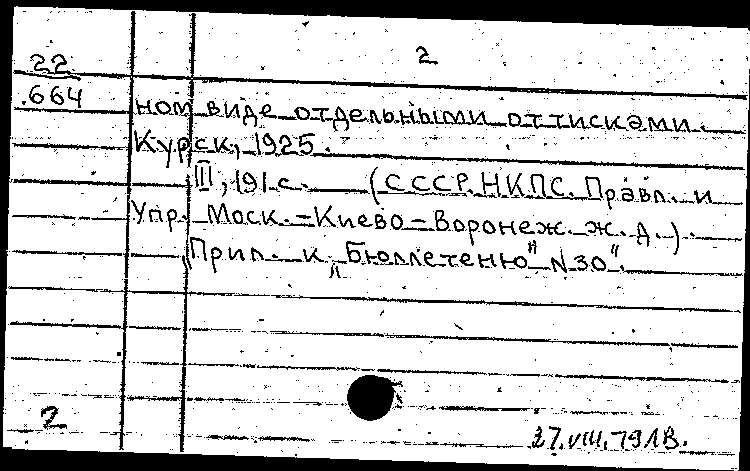 22 2
.664 ном виде отдельными оттисками.
Курск, 1925.
III, 191 с. (СССР. НКПС. Правл. и
Упр. Моск.-Киево-Воронеж. ж. д.).
Прил. к „Бюллетеню" N 30".
2
27.VIII.79